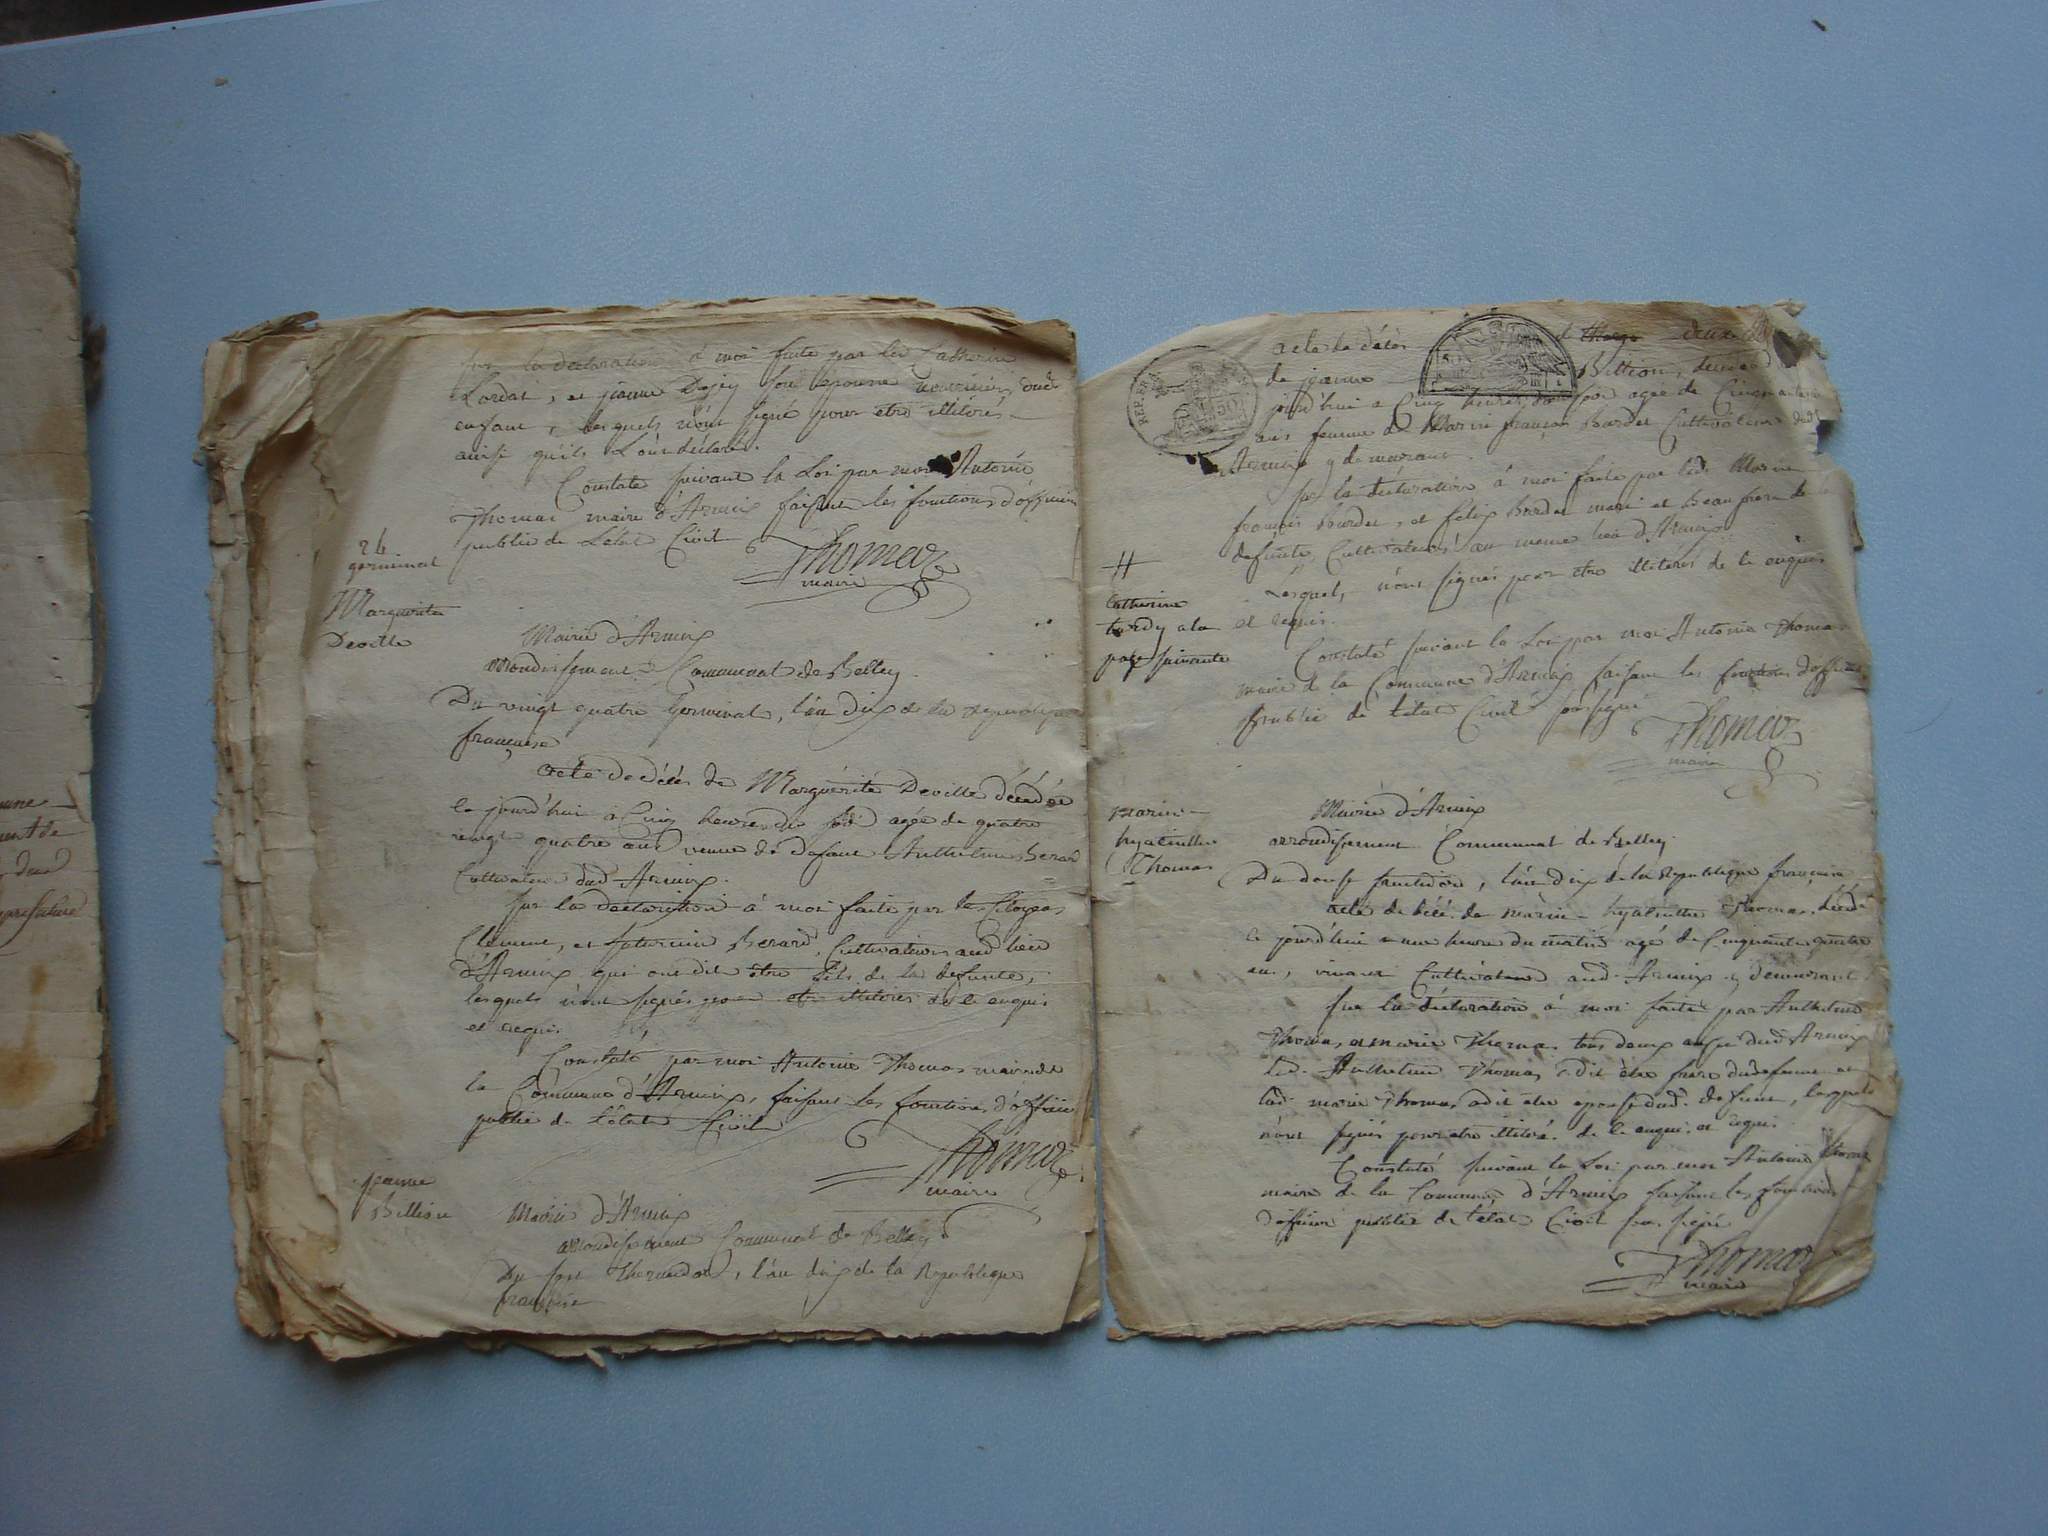 sur la déclaration à moi faite par led Catherin
Lordat, et jeanne Dejey son épouse nourricier dud
enfant, lesquels n'ont signé pour etre illitérés
ainsi qu'ils l'ont déclaré.
Constaté suivant la Loi par moi Antoine
Thomas maire d'Armix faisant les fonctions d'officier
public de L'état Civil
Thomas
maire
24
germinal
Marguerite
Deville
Mairie d'Armix
arrondissement Communal de Belley.
Du vingt quatre Germinal, l'an dix de la république
française
acte de décès de Marguérite Deville décédée
le jourd'hui à Cinq heures du soir agée de quatre
vingt quatre ans veuve de defunt Anthelme Berard
Cultivateur dud Armix.
sur la déclaration à moi faite par les Citoyens
Clément, et saturnin Berard, Cultivateurs aud lieu
d'Armix qui ont dit être fils de la defunte,
lesquels n'ont signés pour etre illitérés de ce enquis
et requis
Constaté par moi Antoine Thomas maire de
la Commune d'Armix, faisant les fonctions d'officier
public de l'état Civil
Thomas
maire
jeanne
Billion
Mairie d'Armix
arrondissement Communal de Belley
Du sept Thermidor, l'an dix de la République
française
acte de décès
de jeanne Billion, décédée
jourd'hui a Cinq heures du soir agée de Cinquante
ans femme de Marin françois Bardet Cultivateur dud
Armix y demeurant.
sur la déclaration à moi faite par led. Marin
françois Bardet, et felix Bardet mari et Beau frere de la
defunte, Cultivateurs au meme lieu d'Armix
Lesquel, n'ont signés pour etre illitérés de ce enquis
et requis.
Constaté suivant la Loi par moi Antoine Thomas
maire de la Commune d'Armix faisant les fonctions d'officier
Public de l'état Civil soussigné
Thomas
maire
#
Catherine
tardy a la
page suivante
marin
hyacinthe
Thomas
Mairie d'Armix
arrondissement Communal de Belley
Du douse fructidor, l'an dix de la République française
acte de décé de marin hyacinthe Thomas, décédé
le jourd'hui a une heure du matin agé de Cinquante quatre
ans, vivant Cultivateur aud Armix y demeurant
sur la déclaration à moi faite par Anthelme
Thomas, et marie Thomas tous deux aussi dud Armix
led. Anthelme Thomas, a dit être frere dud defunt et
lad marie Thomas a dit etre epouse dud. defunt, lesquels
n'ont signés pour etre illitéré. de ce enquis et requis
Constaté suivant la Loi par moi Antoine Thomas
maire de la Commune d'Armix faisant les fonctions
d'officier public de l'état Civil sous signé
Thomas
maire